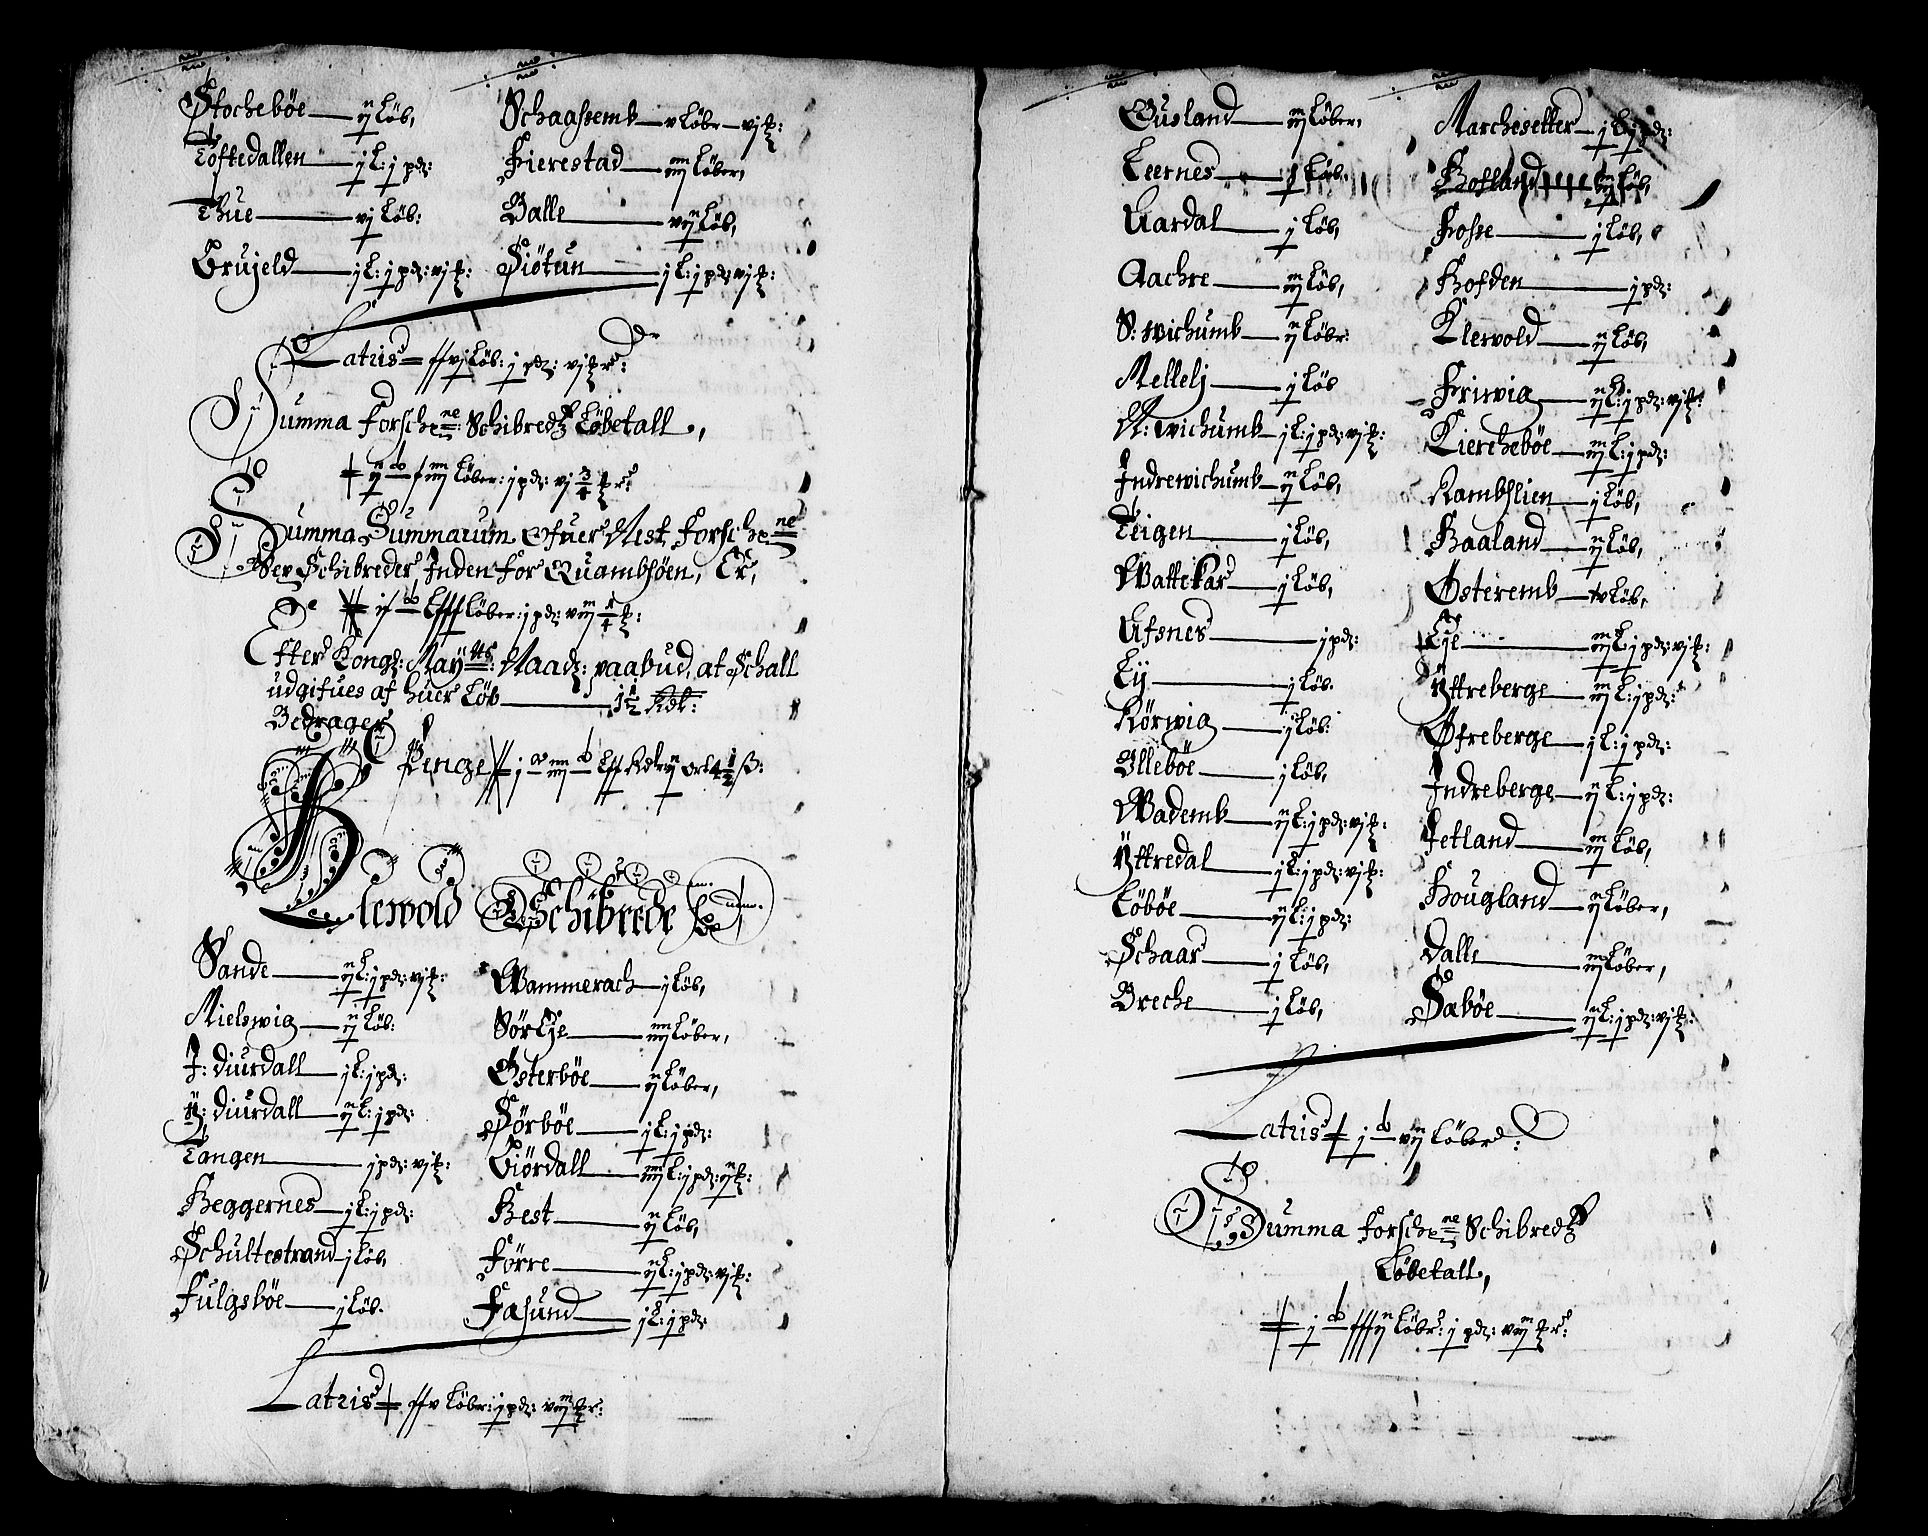 Stocheböe — ij Löb,
Toftedallen — j L: j pd:
Thue — vj Löb:
Grujeld — j L: j pd: vj
Schaassemb — v Löber — vj
Fierestad — iiij Löber,
Balle — vij Löb,
Siötun — j L: j pd: vj
Latris
Summa Forsch ne: Schibredz Löbetall,
Löber: j pd: vj 3/4
Summa Summarum Ofuer Nest Forsch ne
Sex Schibreder Inden for Quambsöen, Er,
Löber: j pd: viij 1/4
Efter Kongl: Mayts: Naadz: paabud, at Schall
udgifues af huer Löb — j 1/2 Rdl:
Bedrager
Penge
Klewold Schibrede
Sande — ij L: j pd: vj
Mielswig — ij Löb:
J: diurdall — j L: j pd:
Y: diurdall — ij L: j pd:
Tangen — j pd: vj
Heggernes — j L: j pd:
Schultestrand j Löb,
Fulgsböe — j Löb.
Wammerach — j Löb,
Sör Eje — iiij Löber,
Österböe — ij Löber,
Sörböe — j L: j pd:
Giördall — iiij L: j pd: ij
Hest — ij Löb,
Förre — ij L: j pd: vj
Fasund — j L: j pd:
Latris Löber: j pd: viij
Gusland — iij Löber,
Leernes — j Löb,
Aardal — j Löb,
Aachre — iij Löb,
S: wichumb — ij Löbr:
Mellelj — j Löb
N: wichumb — j L: j pd: vj
Indrewichumb — ij Löb,
Teigen — j Löb,
Wattekar — j Löb,
Afsnes — j pd:
Ey — j Löb.
Rörwig — j Löb:
Olleböe — j Löb,
Wademb — ij L: j pd: vj
Yttredal — j L: j pd: vj
Löböe — ij L: j pd:
Schaar — j Löb,
Breche — j Löb,
Marchesetter — j L: j pd:
Hofland
Fosse — j Löb,
Hofden — j pd:
Klewold — ij Löb,
Friwig — ij L: j pd: vj
Kiercheböe — iij L: j pd:
Rambslien — j Löb,
Haaland — ij Löb,
Østeremb — v Löb,
Eje — iij L: j pd: vj
Yttreberge — iij L: j pd:
Øfreberge — j L: j pd:
Indreberge — ij L: j pd:
Jetland — iij Löb,
Hougland — ij Löber,
Dalle — iij Löber,
Sæböe — ij L: j pd: vj
Latris j viij Löber:
Summa Forsch ne Schibredz
Löbetall,
Löbr: j pd: viij